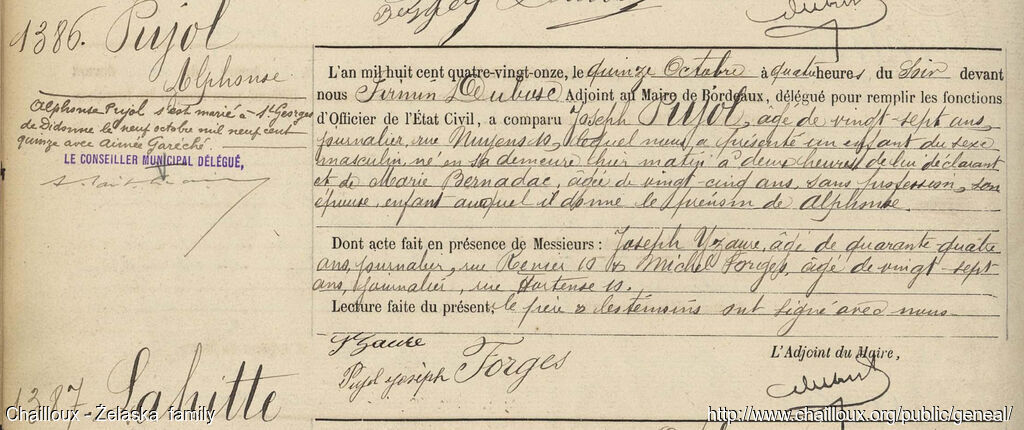 1386. Pujol
Alphonse
Alphonse Pujol s'est marié à St Georges
de Didonne le neuf octobre mil neuf cent
quinze avec Aimée Gareché.
LE CONSEILLER MUNICIPAL DÉLÉGUÉ,
L'an mil huit cent quatre-vingt-onze, le quinze Octobre à quatre heures du Soir devant
nous Firmin Dubosc Adjoint au Maire de Bordeaux, délégué pour remplir les fonctions
d'Officier de l'État Civil, a comparu Joseph Pujol, âgé de vingt-sept ans
journalier, rue Nuyens 10, lequel nous a présenté un enfant du sexe
masculin, né en sa demeure hier matin à deux heures, de lui déclarant
et de Marie Bernadac, âgée de vingt-cinq ans, sans profession, son
épouse, enfant auquel il donne le prénom de Alphonse.
Dont acte fait en présence de Messieurs : Joseph Yzaure, âgé de quarante-quatre
ans, journalier, rue 10 & Michel Forges, âgé de vingt-sept
ans, journalier, rue Hortense 10.
Lecture faite du présent, le père & les témoins ont signé avec nous
Yzaure
Pujol joseph Forges
L'Adjoint du Maire,
Dubosc
1387. Lahitte
Chailloux - Żelaska family
http://www.chailloux.org/public/geneal/